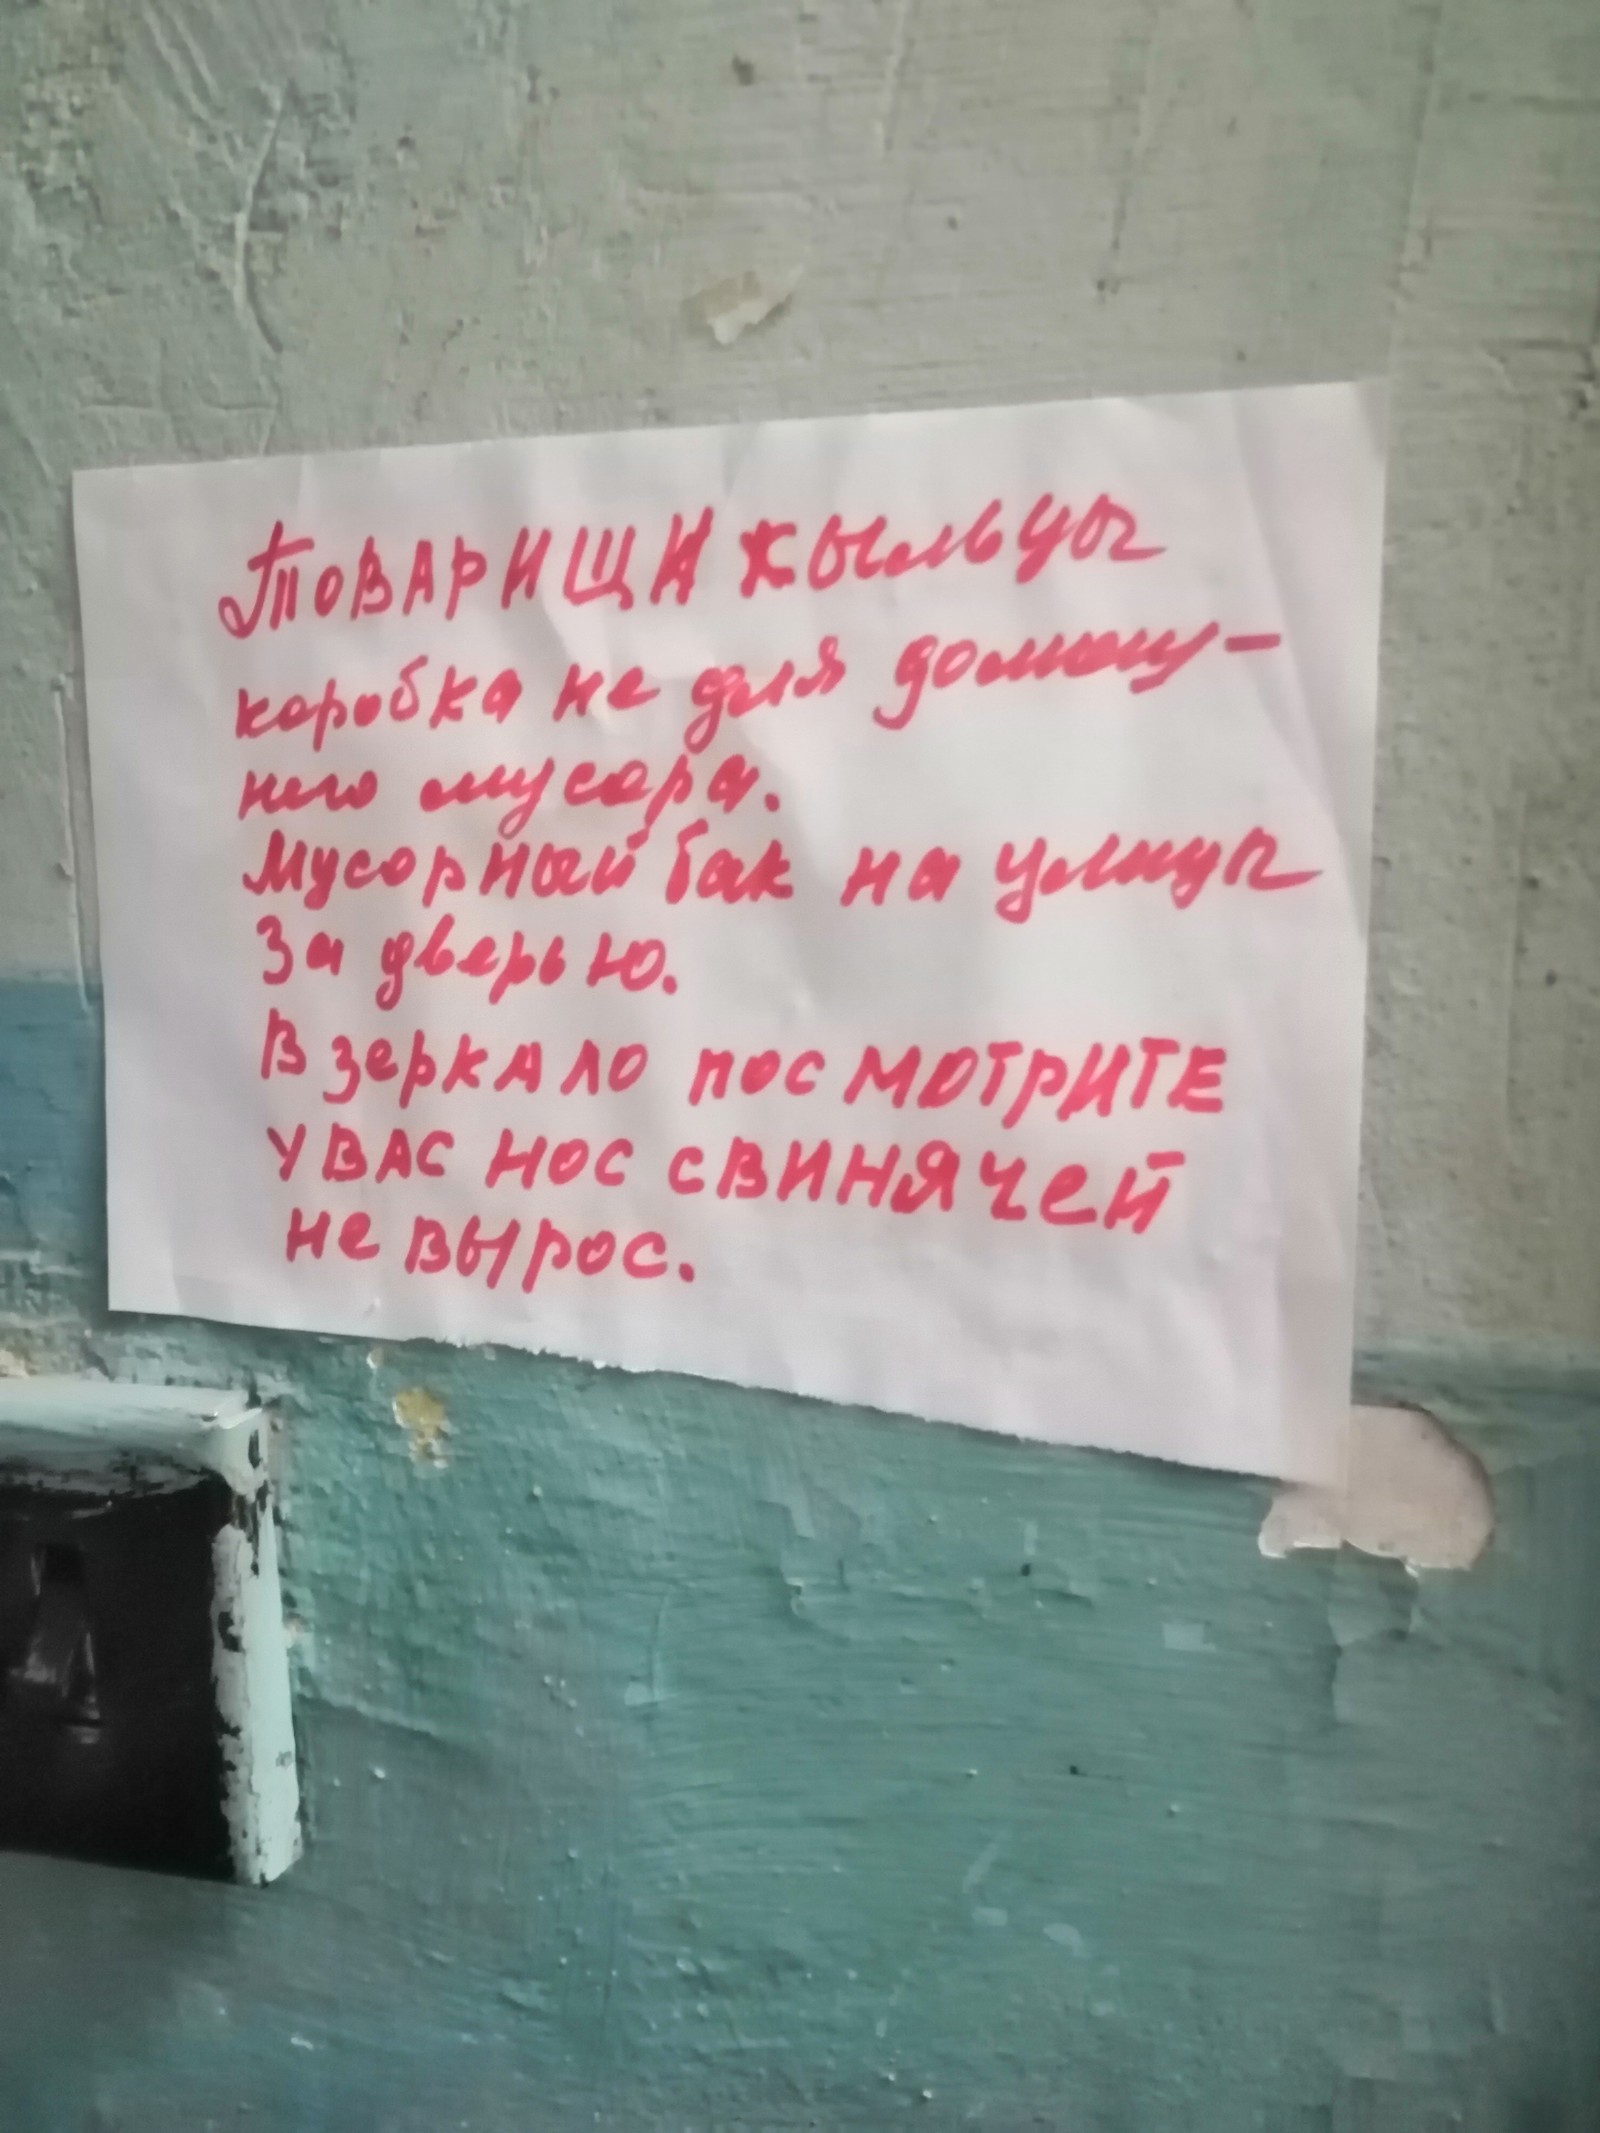 ТОВАРИЩИ жыльцы
коробка не для домаш-
него мусора.
Мусорный бак на улицы
За дверью.
В зеркало посМОТРИТЕ
У ВАС НОС СВИНЯЧЕЙ
не вырос.